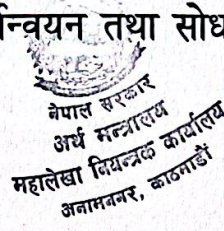 न्वियन तथा सोध
नेपाल सरकार
अर्थ मन्त्रालय
महालेखा नियन्त्रक कार्यालय
अनामनगर, काठमाडौं